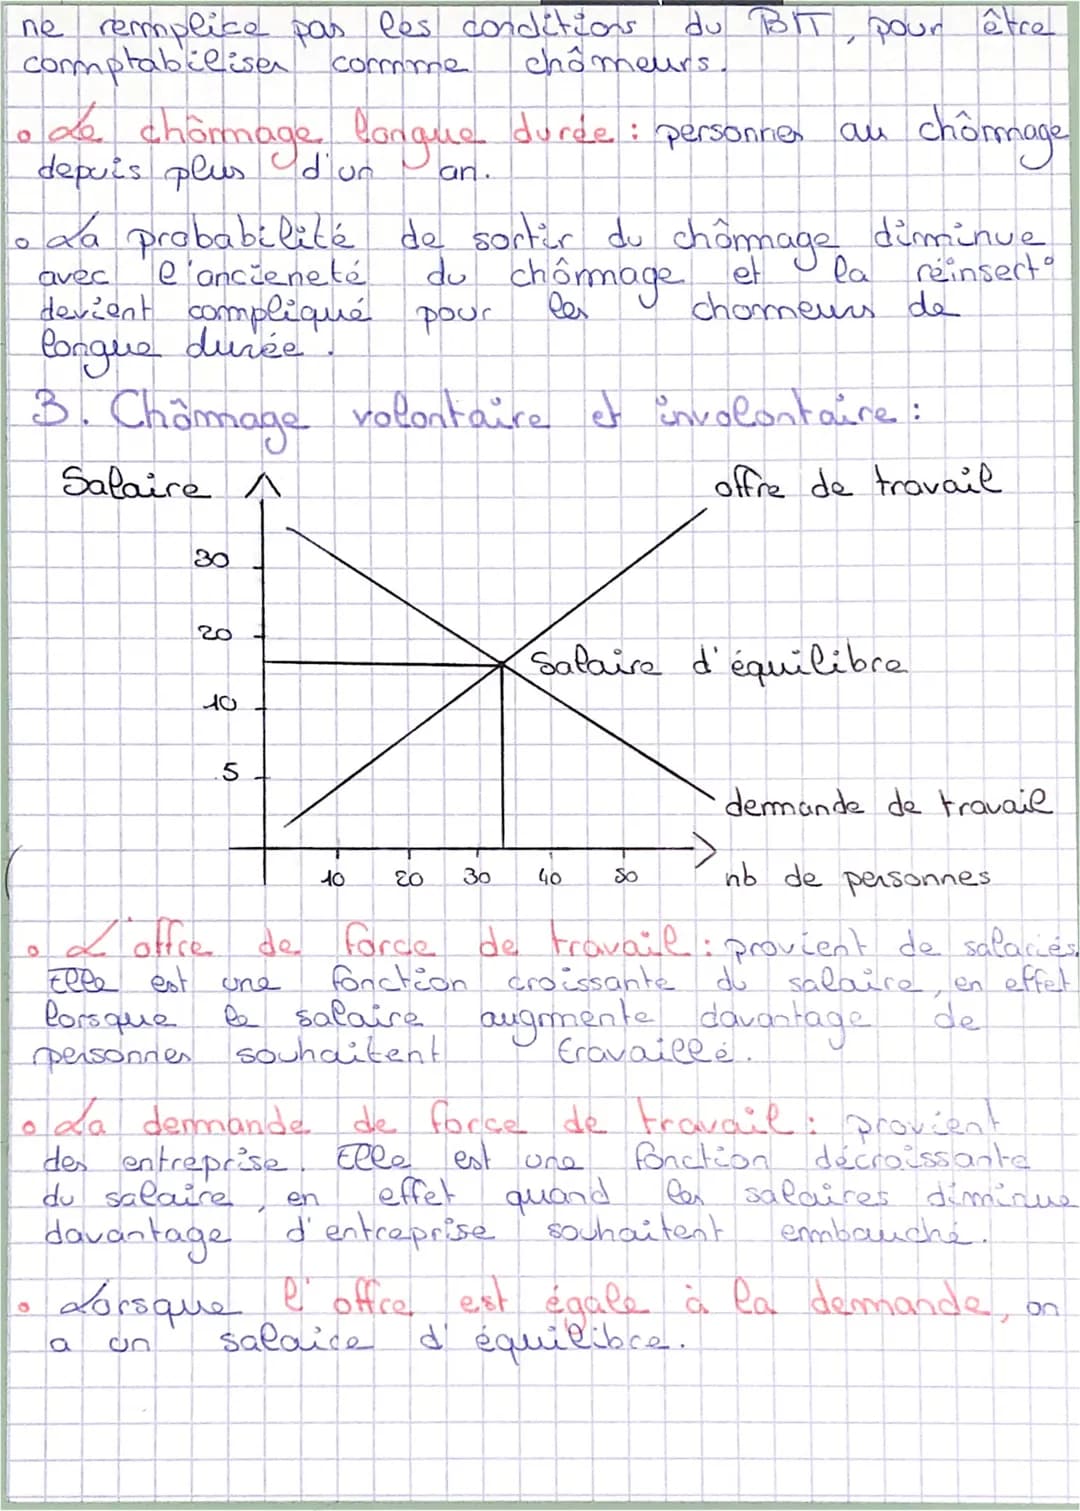 ne remplice pas les conditions du BIT, pour être
comptabiliser comme chômeurs.
• Le chômage longue durée : personnes au chômage
depuis plus d'un an.
• La probabilité de sortir du chômage diminue
avec l'ancieneté du chômage et la réinsert°
devient compliqué pour les chomeurs de
longue durée.
3. Chômage volontaire et involontaire :
Salaire
offre de travail
30
20
Salaire d'équilibre
10
5
demande de travail
10 20 30 40 50
nb de personnes
• L'offre de force de travail : provient de salariés.
Elle est une fonction croissante du salaire, en effet
lorsque le salaire augmente davantage de
personnes souhaitent travaillé.
• La demande de force de travail : provient
des entreprise. Elle est une fonction décroissante
du salaire, en effet quand les salaires diminue
davantage d'entreprise souhaitent embauché.
• Lorsque l'offre est égale à la demande, on
a un salaire d'équilibre.